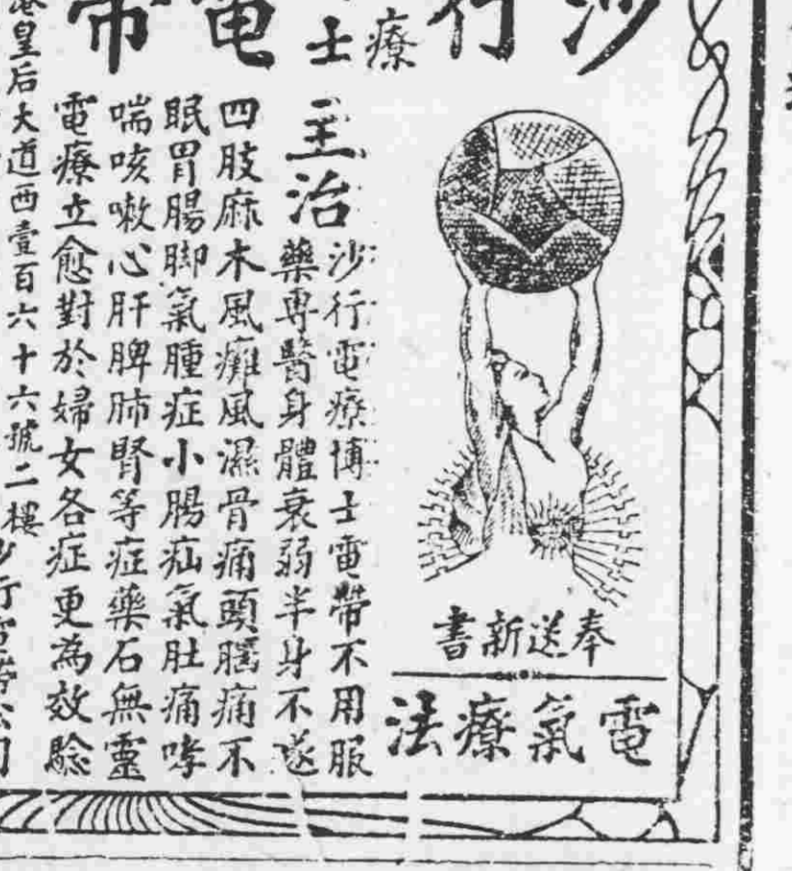 沙行
療
士
電帶
奉送新書
電氣療法
主治
沙行電療博士電帶不用服
藥專醫身體衰弱半身不遂
四肢麻木風癱風濕骨痛頭腦痛不
眠胃腸脚氣腫症小腸疝氣肚痛哮
喘咳嗽心肝脾肺腎等症藥石無靈
電療立愈對於婦女各症更為效驗
皇后大道西壹百六十六號二樓